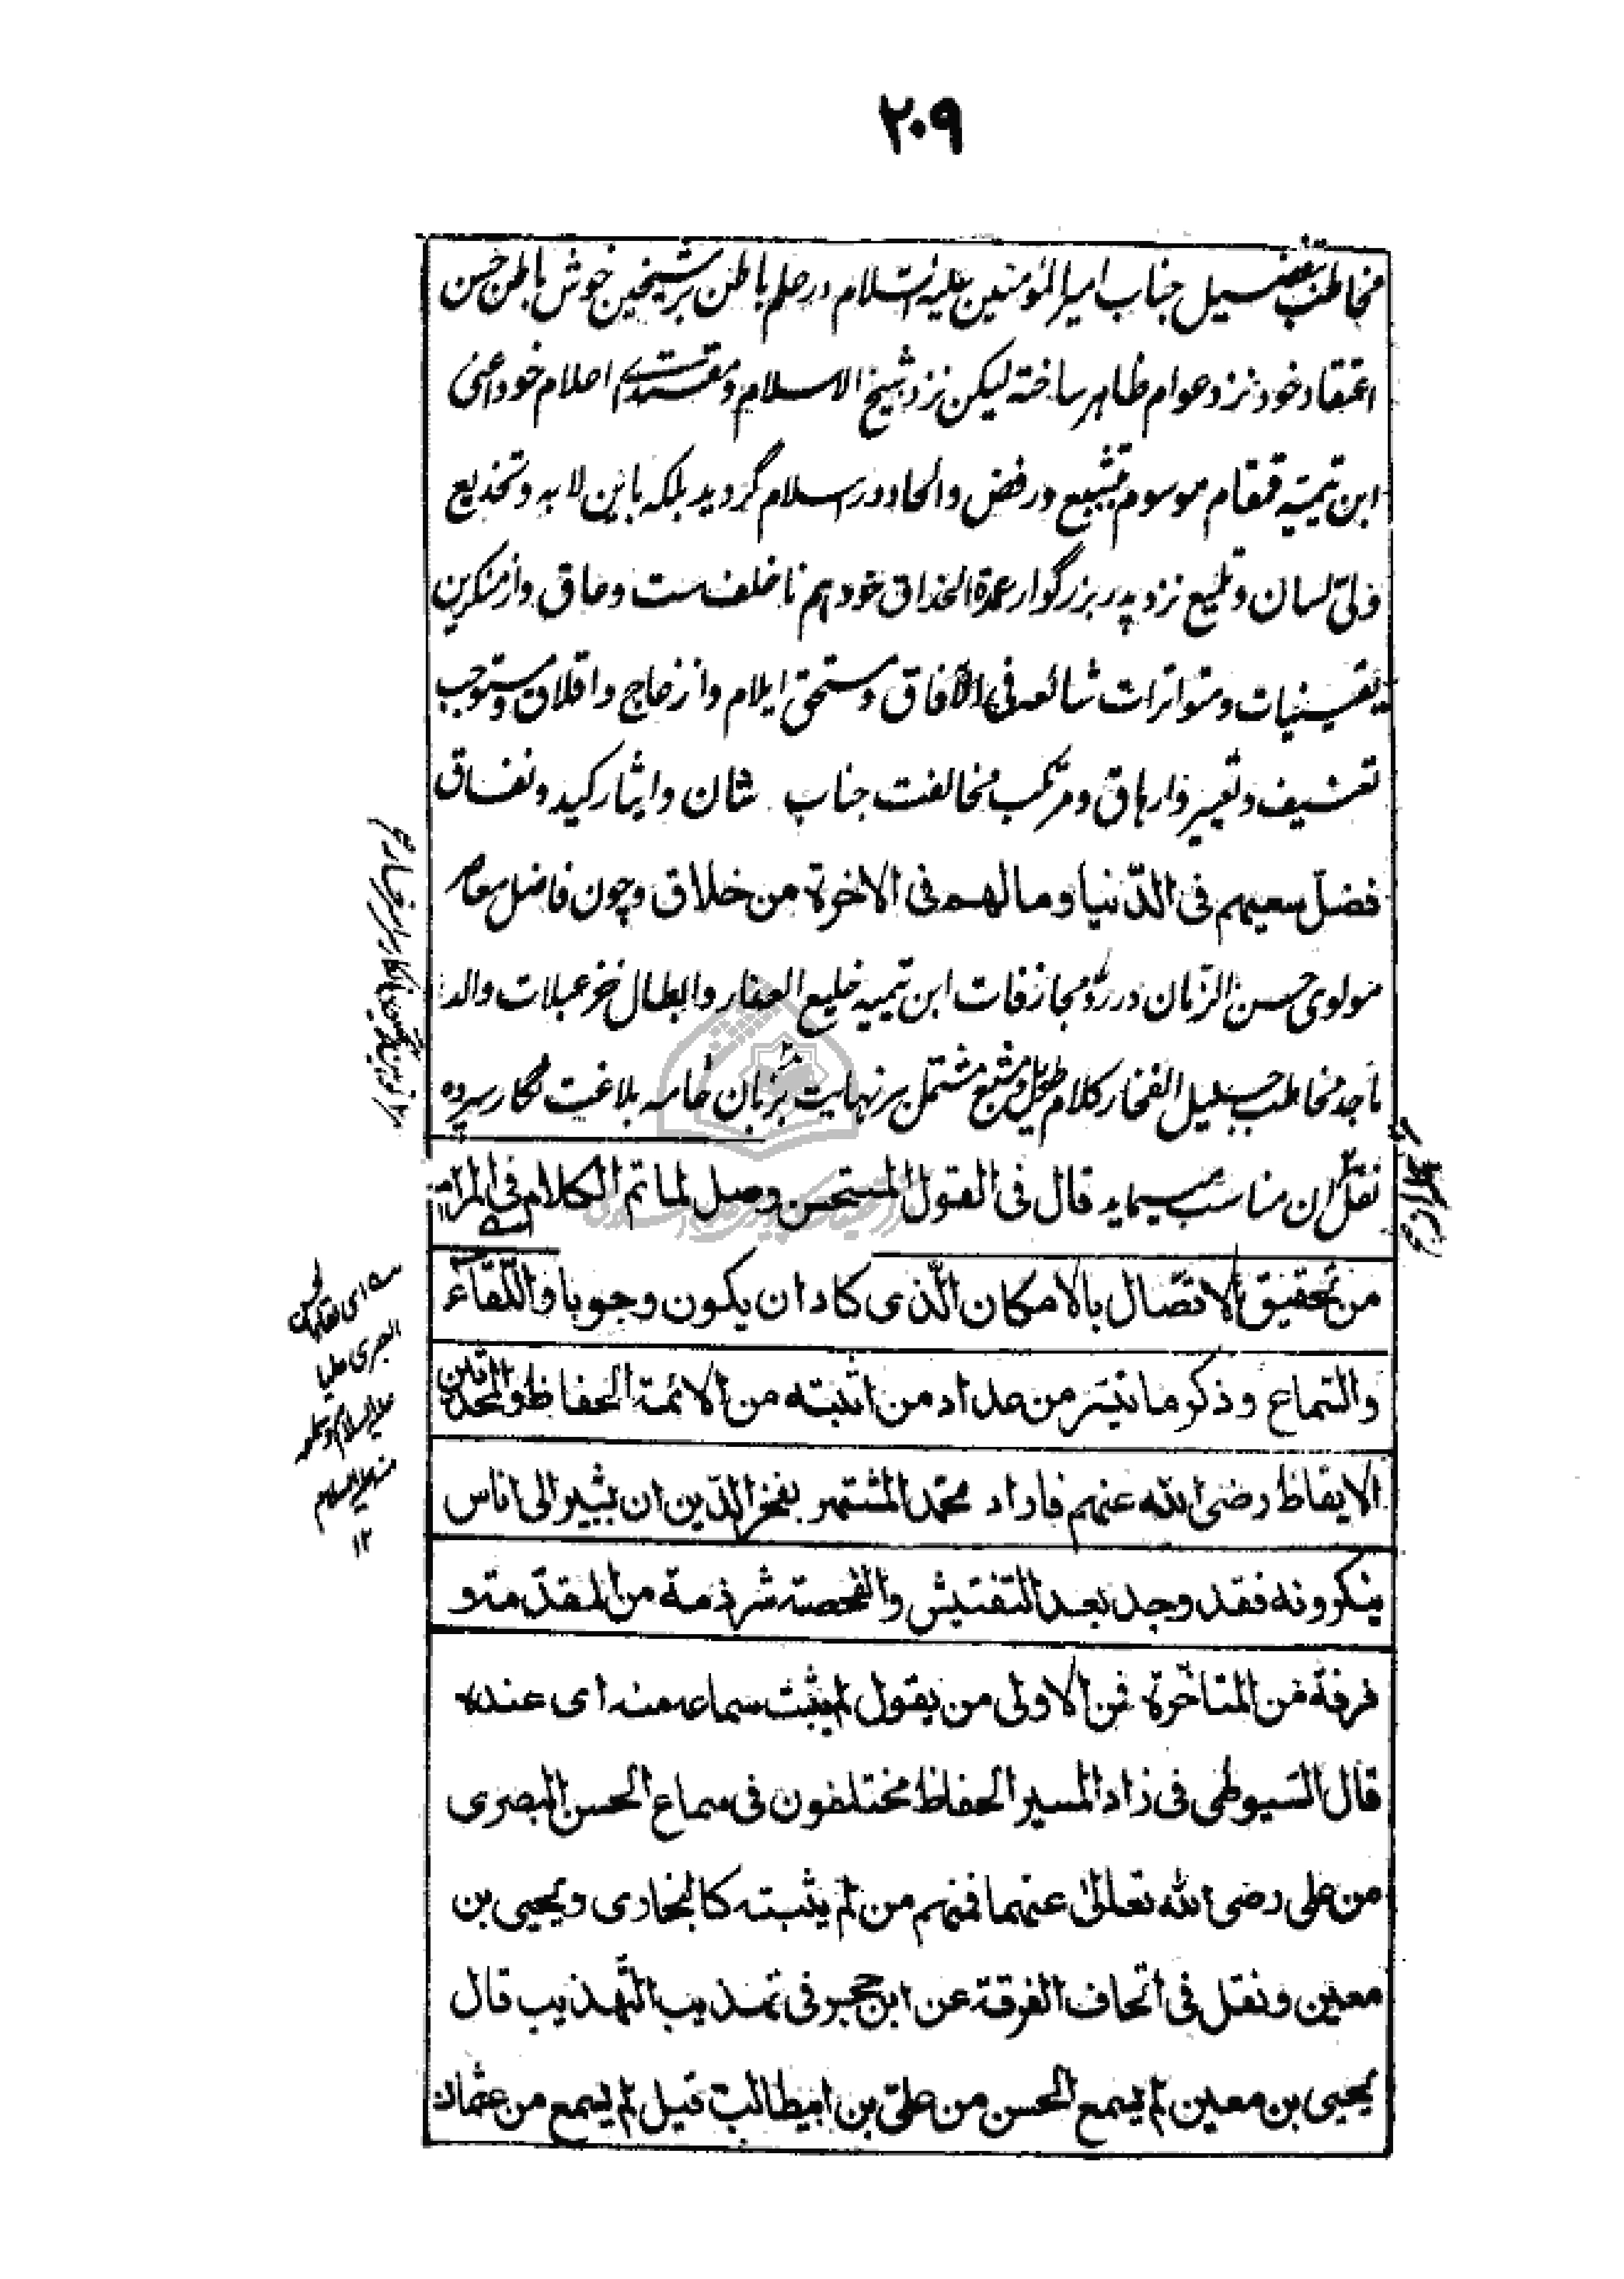 ٢٠٩
مخاطب بتفضیل جناب امیرالمؤمنین علیه السّلام در علم باطن بر شیخین خوش باطن حسن
اعتقاد خود نزد عوام ظاهر ساخته لیکن نزد شیخ الاسلام و مقتدای اعلام خود اعنی
ابن تیمیّه قمقام موسوم بتشیع و رفض و الحاد در اسلام گردید بلکه باین لابه و تخدیع
و لیّ لسان و تلمیع نزد پدر بزرگوار عمدة الحذاق خود هم ناخلف ست و عاق و از منکرین
یقینیات و متواترات شائعه فی الآفاق و مستحق ایلام و ازعاج و اقلاق و مستوجب
تعنیف و تعییر و ارهاق و مرتکب مخالفت جناب شان و ایثار کید و نفاق
فضلّ سعیهم فی الدّنیا و ما لهم فی الاخرة من خلاق و چون فاضل معاصر
مولوی حسن الزّمان در ردّ مجازفات ابن تیمیه خلیع العذار و ابطال خزعبلات والد
ماجد مخاطب جلیل الفخار کلام طویل و مشبع مشتمل بر نهایت بزبان خامه بلاغت نگار سپرده
نقل ان مناسب مینماید قال فی القول المستحسن وصل لما تم الکلام فی المرام
من تحقیق الاتّصال بالامکان الّذی کاد ان یکون وجوبا و اللّقاء
و السّماع و ذکر ما تیسّر من عداد من اثبته من الائمة الحفاظ و المحدثین
الایقاظ رضی الله عنهم فاراد محمّد المشتهر بفخر الدّین ان یشیر الی اناس
ینکرونه فقد وجد بعد التفتیش و الفحص شرذمة من المقدّمة و
فرقة من المتاخّرة فمن الاولی من یقول لم یثبت سماعه منه ای عنده
قال السّیوطی فی زاد المسیر الحفاظ مختلفون فی سماع الحسن البصری
من علی رضی الله تعالیٰ عنهما فمنهم من لم یثبته کالبخاری و یحیی بن
معین و نقل فی اتحاف الفرقة عن ابن حجر فی تهذیب التّهذیب قال
یحیی بن معین لم یسمع الحسن من علیّ بن ابیطالب قیل لم یسمع من عثمان
البصری علیا
علیه السلام
علیه السلام
١٢